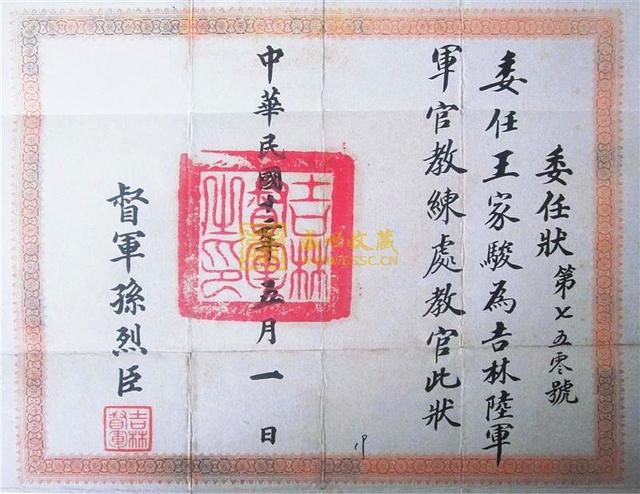 委任狀 第七五零號
委任王家駿為吉林陸軍
軍官教練處教官此狀
中華民國十二年五月一日
吉林督軍之印
督軍孫烈臣
吉林督軍
收藏